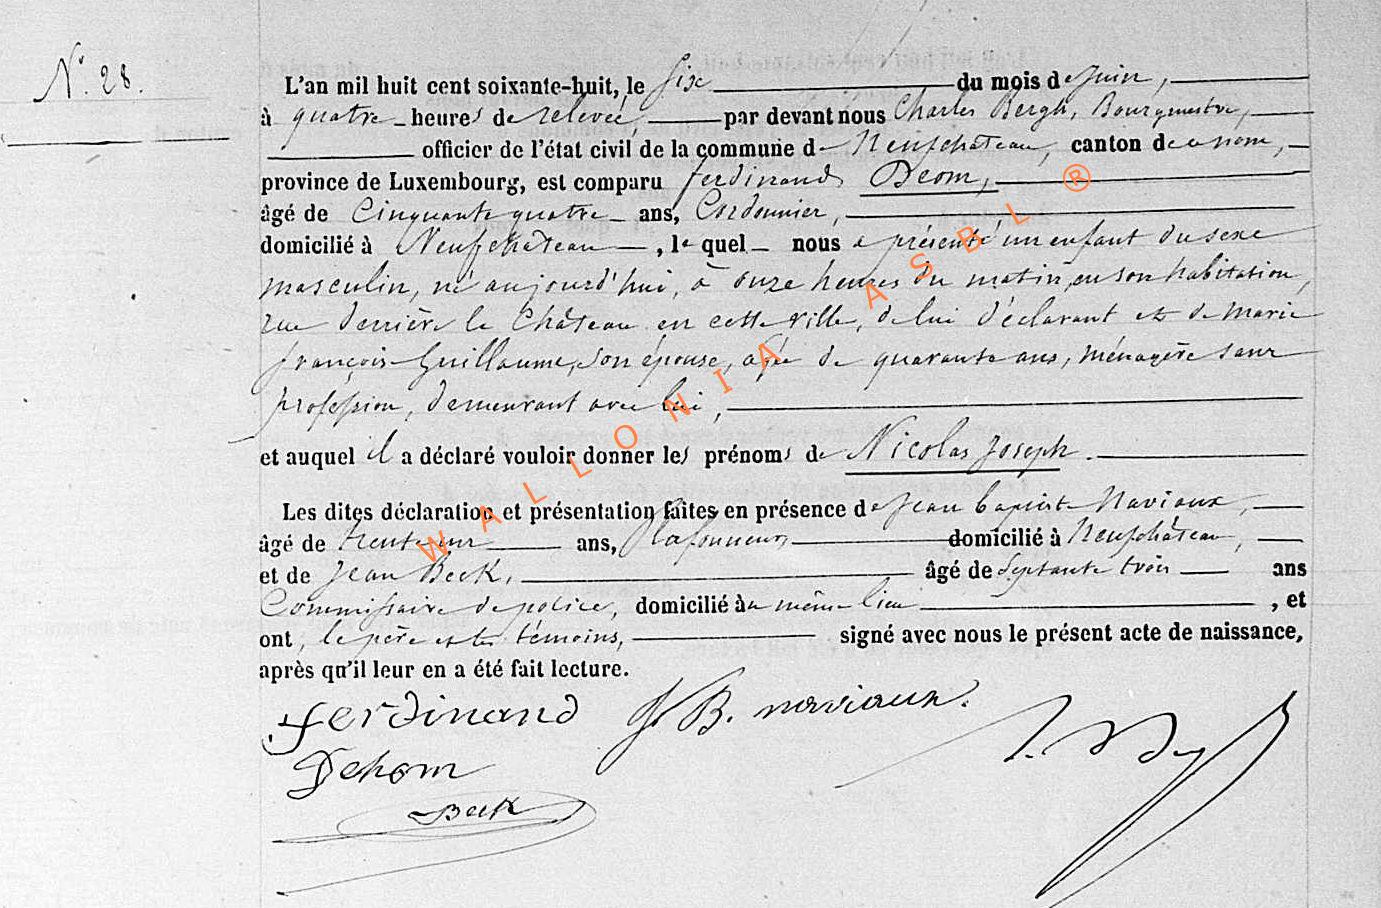 N° 28.
L'an mil huit cent soixante-huit, le six du mois de juin,
à quatre heures de relevée, par devant nous Charles Bergh, Bourgmestre,
officier de l'état civil de la commune de Neufchâteau, canton de ce nom,
province de Luxembourg, est comparu ferdinand Deom,
âgé de Cinquante quatre ans, Cordonnier,
domicilié à Neufchâteau, le quel nous a présenté un enfant du sexe
masculin, né aujourd'hui, à onze heures du matin, en son habitation,
rue derrière le Château en cette ville, de lui déclarant et de marie
françoise Guillaume, son épouse, agée de quarante ans, ménagère sans
profession, demeurant avec lui,
et auquel il a déclaré vouloir donner les prénoms de Nicolas Joseph.
Les dites déclaration et présentation faites en présence de Jean baptiste Naviaux,
âgé de trente un ans, Plafonneur, domicilié à Neufchâteau,
et de Jean Beck, âgé de Septante trois ans
Commissaire de police, domicilié au même lieu, et
ont, le père et les témoins, signé avec nous le présent acte de naissance,
après qu'il leur en a été fait lecture.
ferdinand J B. naviaux.
Dehom
Beck
WALLONIA ASBL ®